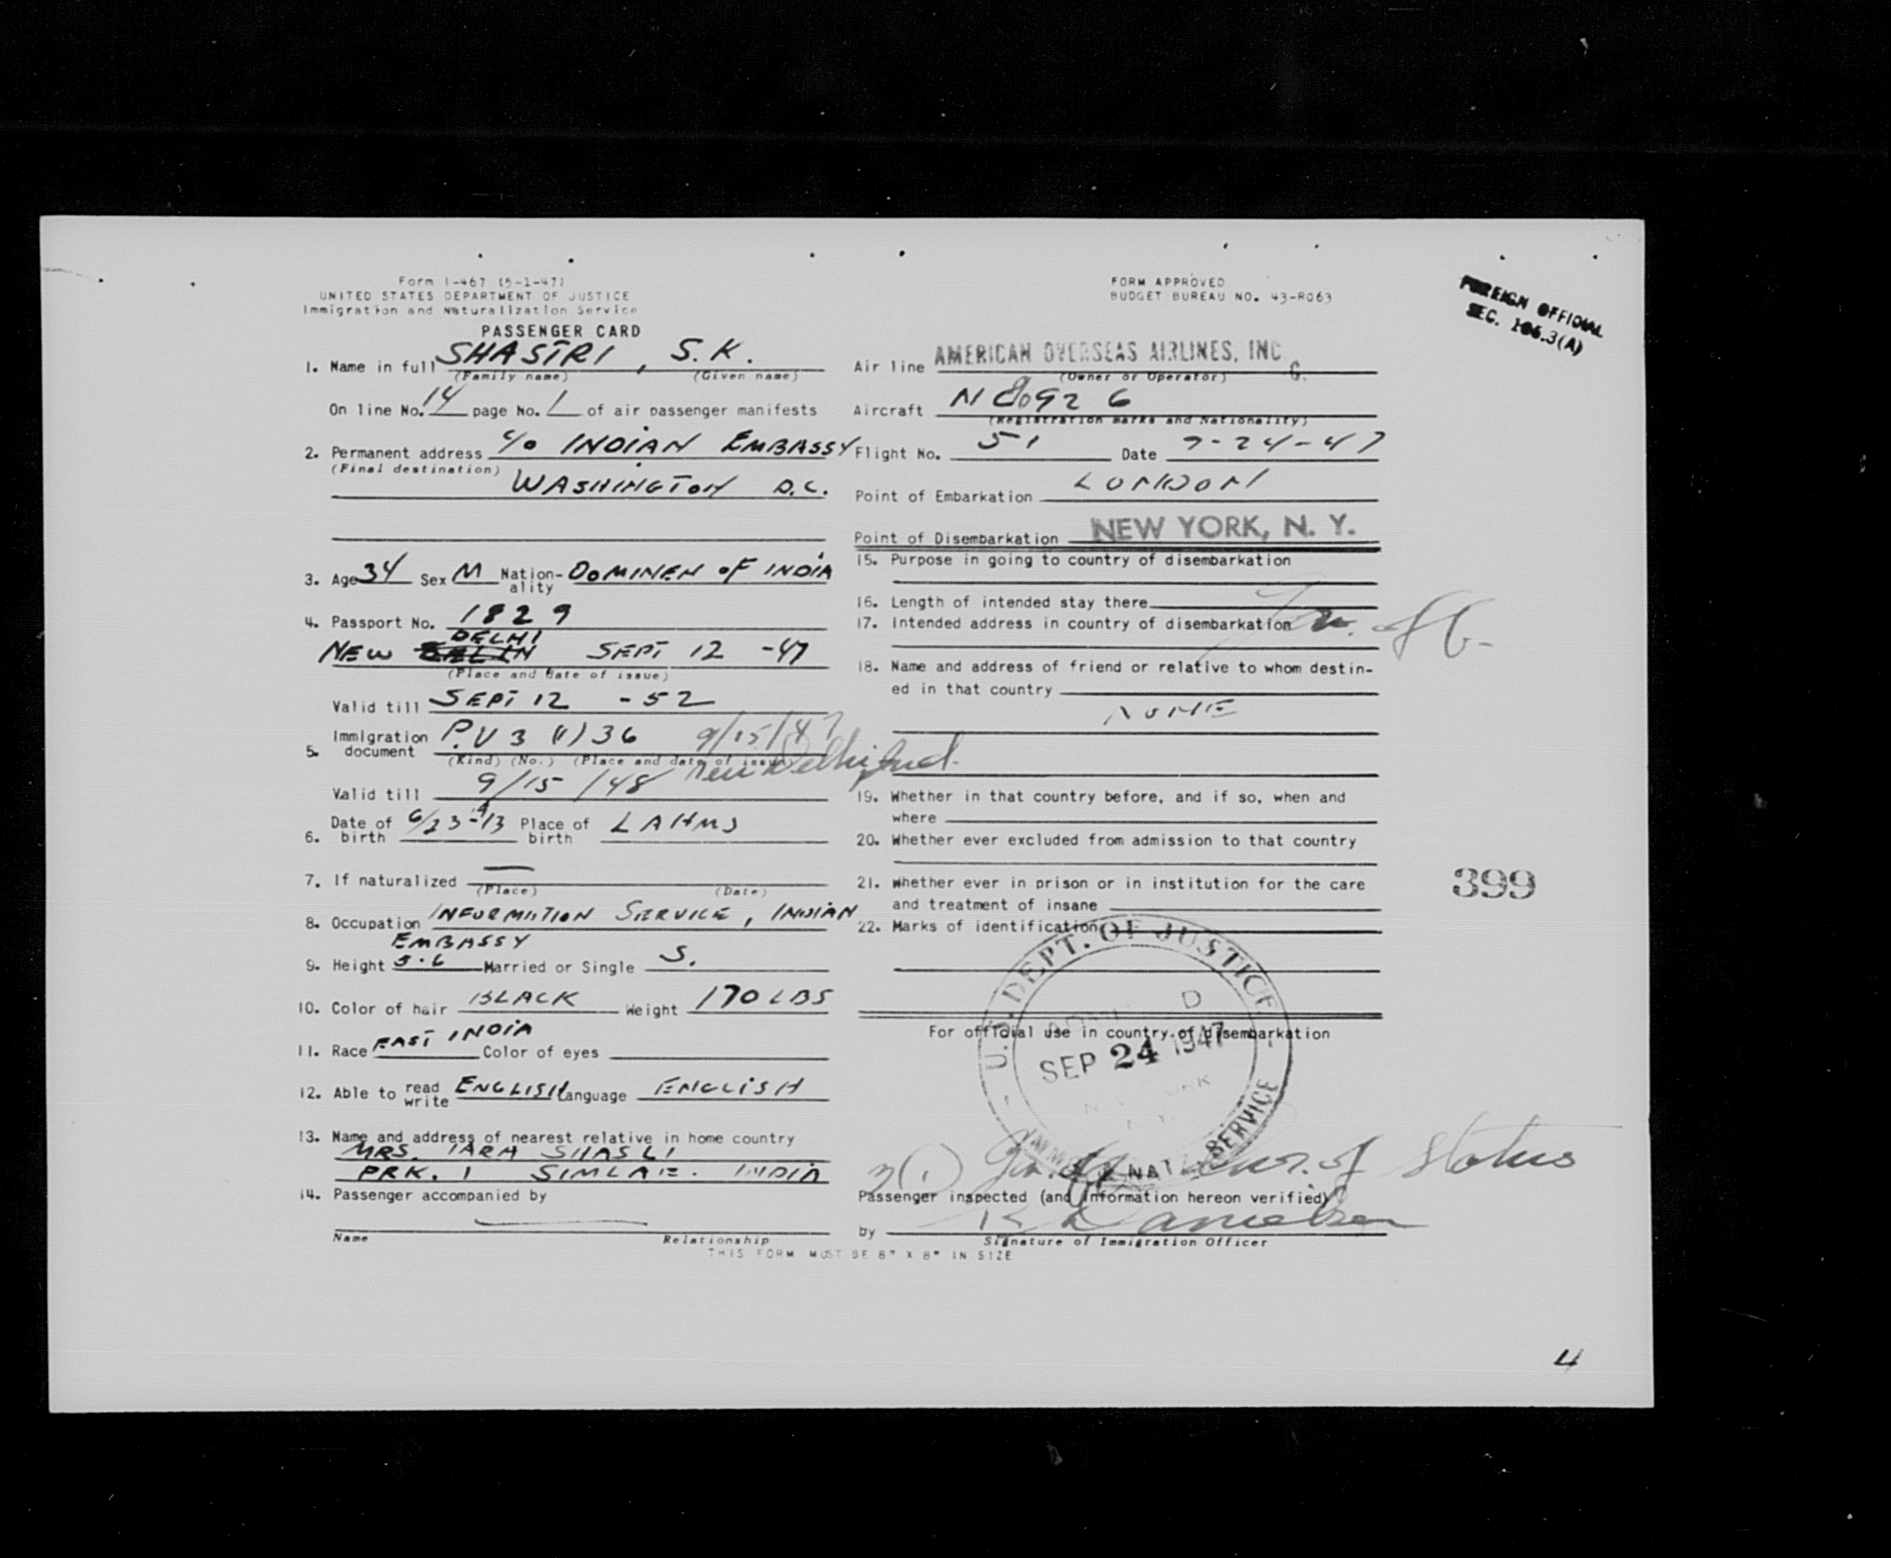 Form I-467 (5-1-47)
UNITED STATES DEPARTMENT OF JUSTICE
Immigration and Naturalization Service
PASSENGER CARD
1. Name in full SHASTRI, S.K.
(Family name) (Given name)
On line No. 14 page No. 1 of air passenger manifests
2. Permanent address c/o INDIAN EMBASSY
(Final destination) WASHINGTON D.C.
3. Age 34 Sex M Nation-ality DOMINEN OF INDIA
4. Passport No. 1829
DELHI
NEW SEPT 12 -47
(Place and date of issue)
Valid till SEPT 12 -52
5. Immigration document P.V 3 (1) 36 9/15/47
(Kind) (No.) (Place and date of issue) New Delhi Ind.
Valid till 9/15/48
6. Date of birth 6/23-13 Place of birth
7. If naturalized —
(Place) (Date)
8. Occupation INFORMATION SERVICE, INDIAN
EMBASSY
9. Height 5.6 Married or Single S.
10. Color of hair BLACK Weight 170 LBS
11. Race EAST INDIA Color of eyes
12. Able to read write ENGLISH Language ENGLISH
13. Name and address of nearest relative in home country
MRS. TARA
PRK. 1 INDIA
14. Passenger accompanied by
Name Relationship
THIS FORM MUST BE 8" X 8" IN SIZE
FORM APPROVED
BUDGET BUREAU NO. 43-R063
FOREIGN OFFICIAL
SEC. 106.3(A)
Air line AMERICAN OVERSEAS AIRLINES, INC.
(Owner or Operator)
Aircraft N 90926
(Registration marks and Nationality)
Flight No. 51 Date 9-24-47
Point of Embarkation LONDON
Point of Disembarkation NEW YORK, N. Y.
15. Purpose in going to country of disembarkation
16. Length of intended stay there
17. Intended address in country of disembarkation
18. Name and address of friend or relative to whom destin-
ed in that country
NONE
19. Whether in that country before, and if so, when and
where
20. Whether ever excluded from admission to that country
21. Whether ever in prison or in institution for the care
and treatment of insane
399
22. Marks of identification
For official use in country of disembarkation
U.S. DEPT. OF JUSTICE
SEP 24 1947
IMMIG. & NATZ. SERVICE
3(1) of Status
Passenger inspected (and information hereon verified)
by
Signature of Immigration Officer
4